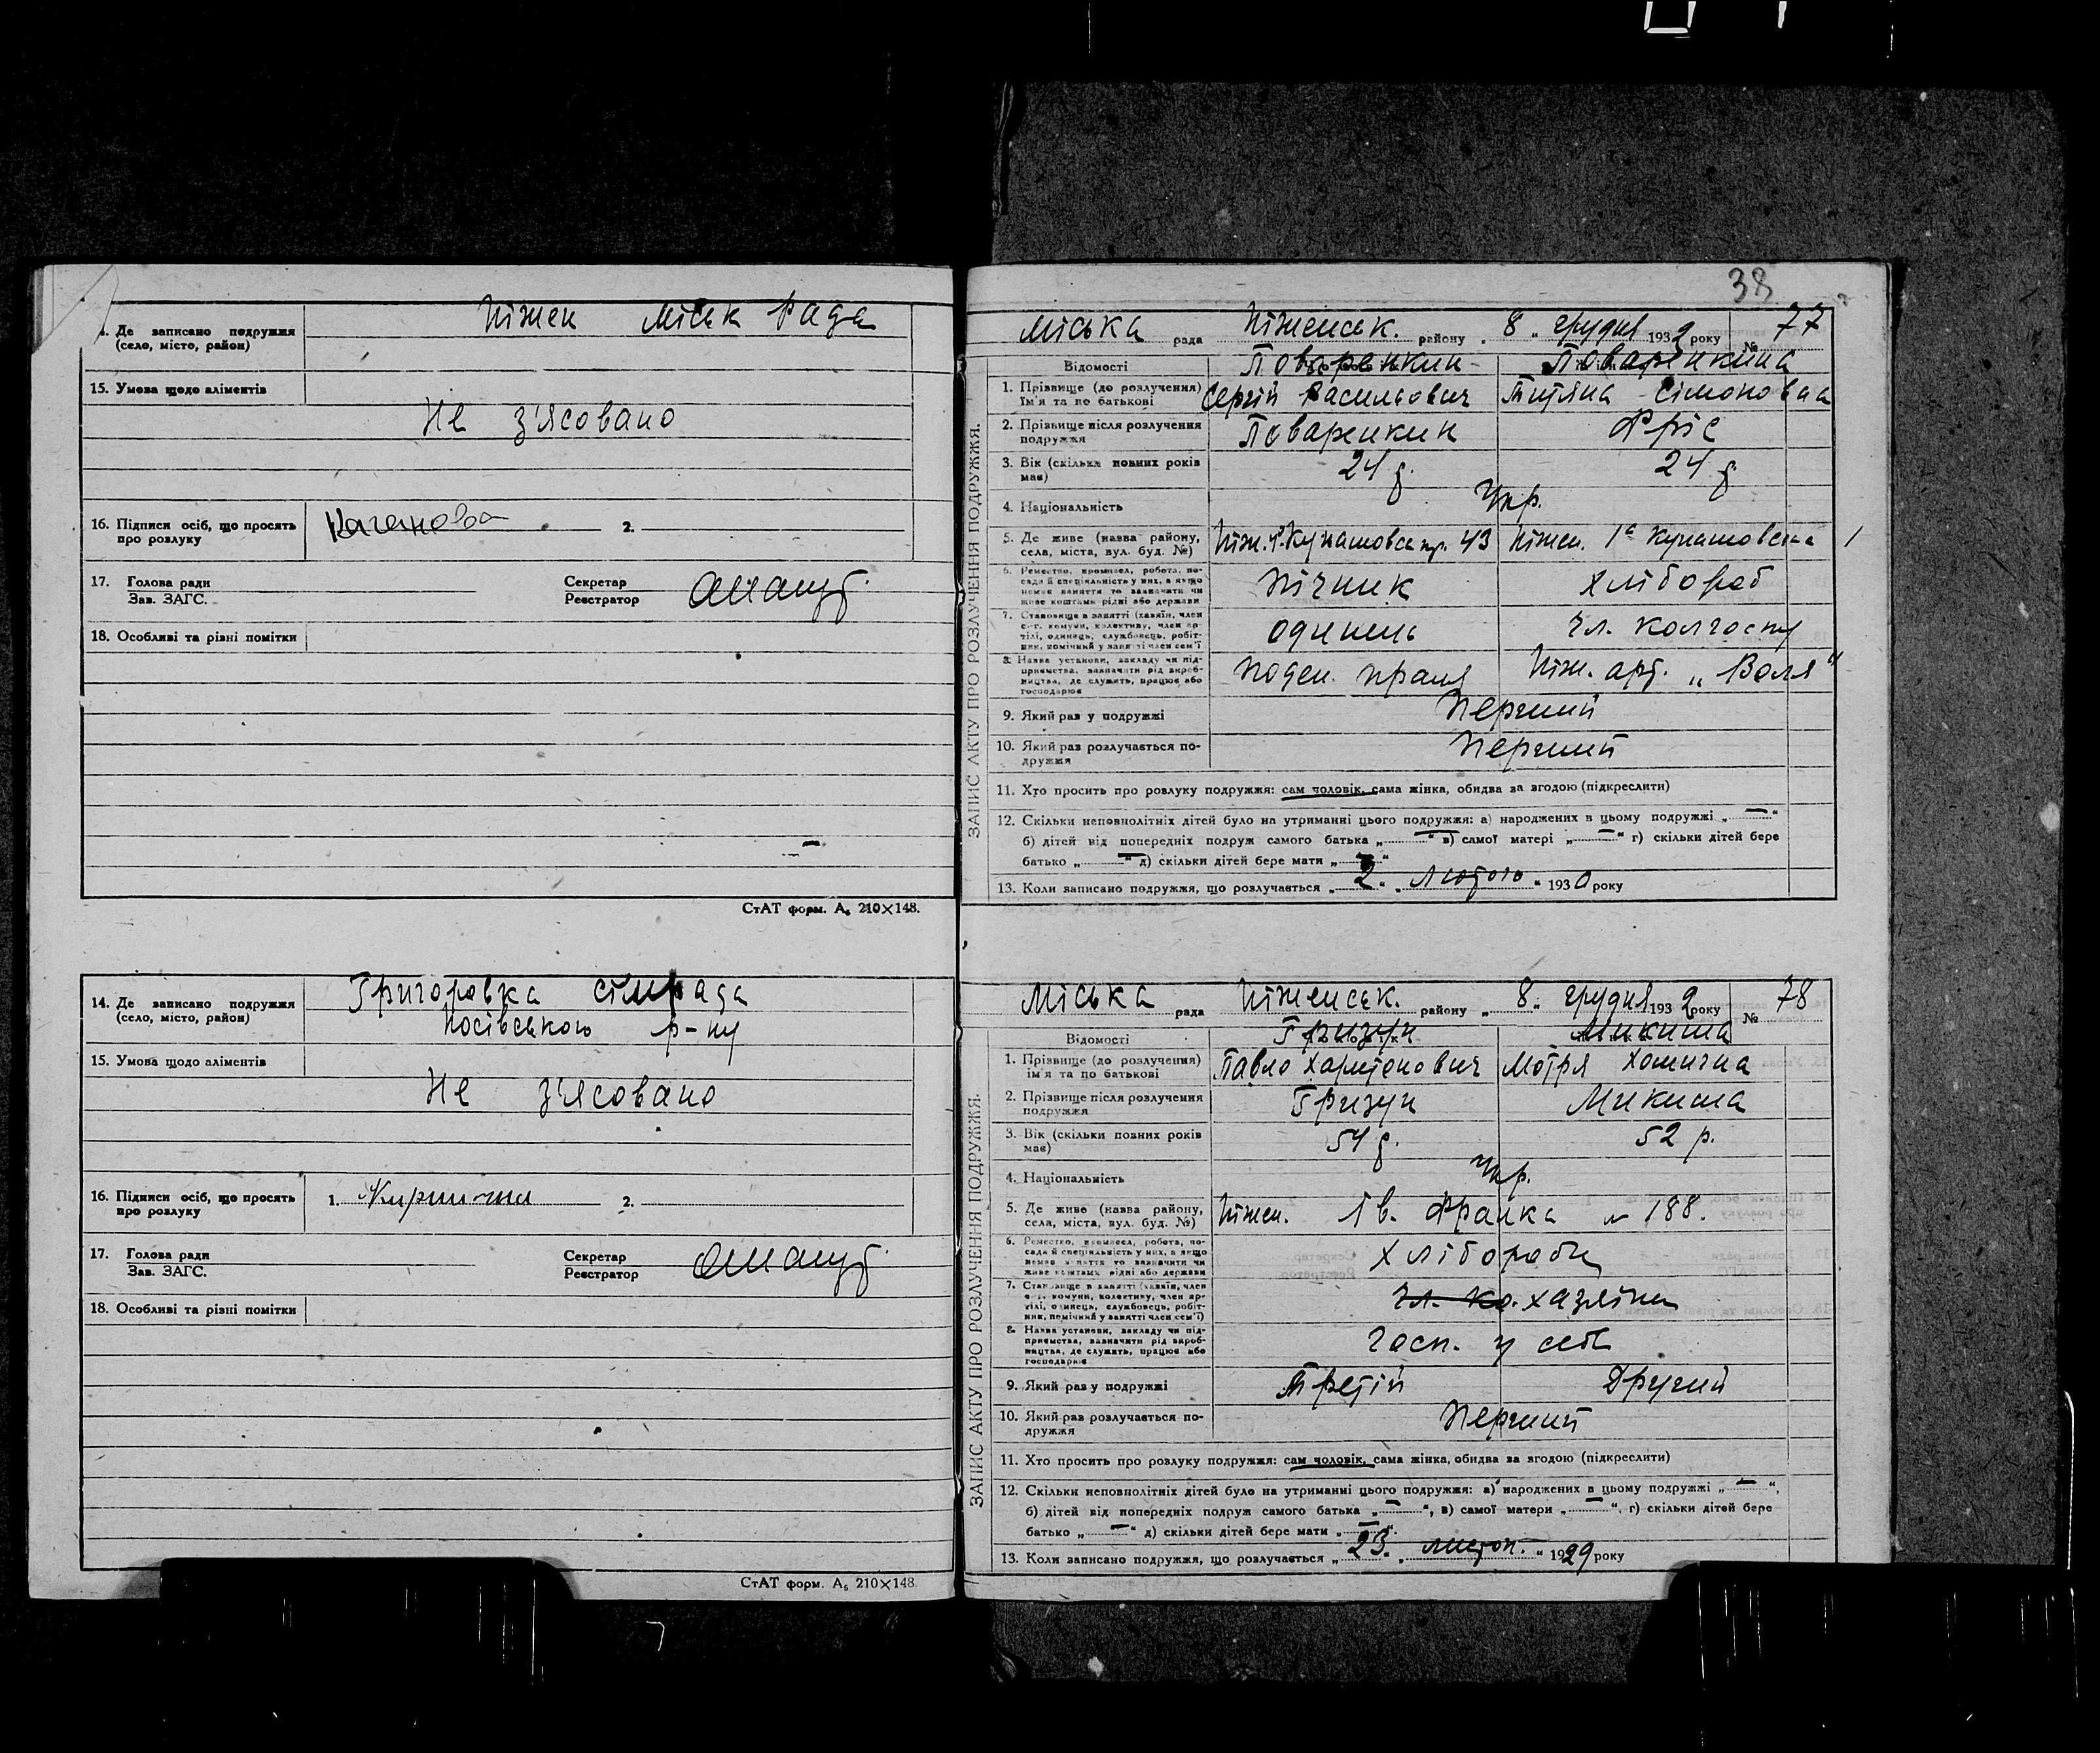 Де записано подружжя
(село, місто, район)
Ніжен міськ рада
15. Умова щодо аліментів
Не з'ясовано
16. Підписи осіб, що просять
про розлуку
2.
17. Голова ради
Зав. ЗАГС.
Секретар
Реєстратор
18. Особливі та різні помітки
СтАТ форм. А₅ 210×148.
14. Де записано подружжя
(село, місто, район)
Григоровка сільрада
Носівською р-ну
15. Умова щодо аліментів
Не з'ясовано
16. Підписи осіб, що просять
про розлуку
1. 2.
17. Голова ради
Зав. ЗАГС.
Секретар
Реєстратор
18. Особливі та різні помітки
СтАТ форм. А₅ 210×148
38
ЗАПИС АКТУ ПРО РОЗЛУЧЕННЯ ПОДРУЖЖЯ.
Міська рада Ніженськ. району „ 8 „ грудня 1932 року № 77
Відомості Поваренкин Поваренкина
1. Прізвище (до розлучення)
ім'я та по батькові
Сергій Васильович Титяна Сімоновна
2. Прізвище після розлучення
подружжя
Поваренкин Фріє
3. Вік (скільки повних років
має)
24 р. 24 р.
4. Національність Укр.
5. Де живе (назва району,
села, міста, вул. буд. №)
Ніж. Кунашовск 43 Ніжен. 1а Кунашовська 1
6. Ремество, промисел, робота, по-
сада й спеціяльність у них, а якщо
немає заняття то зазначити чи
живе коштами рідні або держави
Пічник Хлібороб
7. Становище в занятті (хазяїн, член
с.-г. комуни, колективу, член ар-
тілі, одинець, службовець, робіт-
ник, помічний у занятті член сем'ї
одинець чл. колгоспу
8. Назва установи, закладу чи під-
приємства, зазначити рід вироб-
ництва, де служить, працює або
господарює
поден. праця Ніж. арт. „Воля"
9. Який раз у подружжі Перший
10. Який раз розлучається по-
дружжя
Перший
11. Хто просить про розлуку подружжя: сам чоловік, сама жінка, обидва за згодою (підкреслити)
12. Скільки неповнолітніх дітей було на утриманні цього подружжя: а) народжених в цьому подружжі „ — "
б) дітей від попередніх подруж самого батька „ — " в) самої матері „ — " г) скільки дітей бере
батько „ — " д) скільки дітей бере мати „ — "
13. Коли записано подружжя, що розлучається „ 2 „ Лютого " 1930 року
ЗАПИС АКТУ ПРО РОЗЛУЧЕННЯ ПОДРУЖЖЯ.
Міська рада Ніженськ. району „ 8 „ грудня 1932 року № 78
Відомості Гризун Микиша
1. Прізвище (до розлучення)
ім'я та по батькові
Павло Харитонович Мотря Хомична
2. Прізвище після розлучення
подружжя
Гризун Микиша
3. Вік (скільки повних років
має)
54 р. 52 р.
4. Національність Укр.
5. Де живе (назва району,
села, міста, вул. буд. №)
Ніжен. Ів. Франка № 188.
6. Ремество, промисел, робота, по-
сада й спеціяльність у них, а якщо
немає заняття то зазначити чи
живе коштами рідні або держави
Хлібороби
7. Становище в занятті (хазяїн, член
с.-г. комуни, колективу, член ар-
тілі, одинець, службовець, робіт-
ник, помічний у занятті член сем'ї)
чл. ко. хазяїни
8. Назва установи, закладу чи під-
приємства, зазначити рід вироб-
ництва, де служить, працює або
господарює
госп. у себе
9. Який раз у подружжі Третій Другий
10. Який раз розлучається по-
дружжя
Перший
11. Хто просить про розлуку подружжя: сам чоловік, сама жінка, обидва за згодою (підкреслити)
12. Скільки неповнолітніх дітей було на утриманні цього подружжя: а) народжених в цьому подружжі „ — ",
б) дітей від попередніх подруж самого батька „ — ", в) самої матери „ — ". г) скільки дітей бере
батько „ — " д) скільки дітей бере мати „ — ".
13. Коли записано подружжя, що розлучається „ 23 „ листоп. " 1929 року